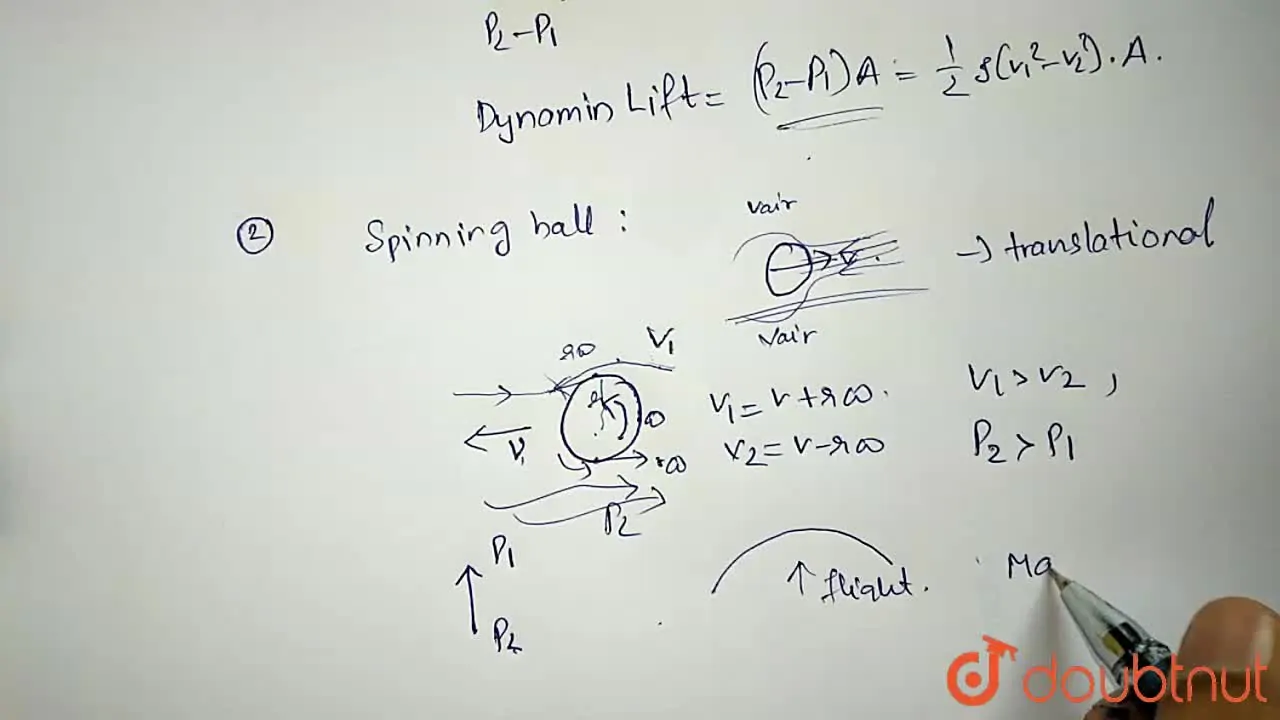 P2-P1
Dynamin Lift = (P2-P1)A = 1/2 ρ(v1²-v2²).A.
② Spinning ball :
vair
v
→ translational
Vair
rω V1
ω
V1
rω
P2
v1 = v+rω.
v2 = v-rω
v1 > v2 ,
P2 > P1
P1
P2
↑ flight.
Ma
doubtnut